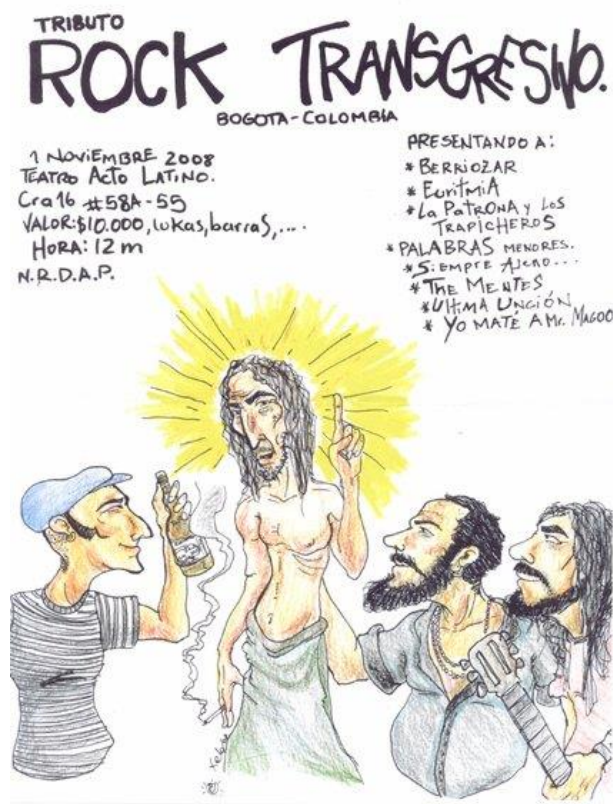 TRIBUTO
ROCK TRANSGRESIVO.
BOGOTA-COLOMBIA
1 NOVIEMBRE 2008
TEATRO ACTO LATINO.
Cra 16 #58A-55
VALOR:$10.000, lukas, barras,....
HORA: 12 m
N.R.D.A.P.
PRESENTANDO A:
* BERRIOZAR
* EuritmiA
* La PATRONA y LOS
TRAPICHEROS
* PALABRAS MENORES.
* SIEMPRE AJENO...
* THE MENTES
* ULTIMA UNCIÓN
* YO MATÉ A Mr. MAGOO